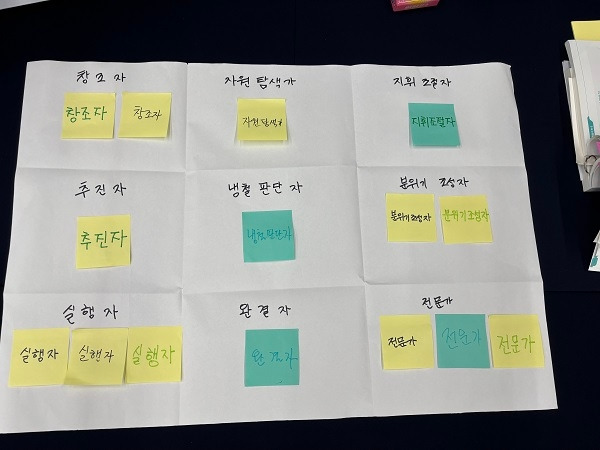 창조자
자원 탐색가
지휘 조절자
창조자
창조자
자원탐색가
지휘조절자
추진자
냉철 판단 자
분위기 조성자
추진자
냉철판단자
분위기조성자
분위기조성자
실행자
완결자
전문가
실행자
실행자
실행자
완결자
전문가
전문가
전문가